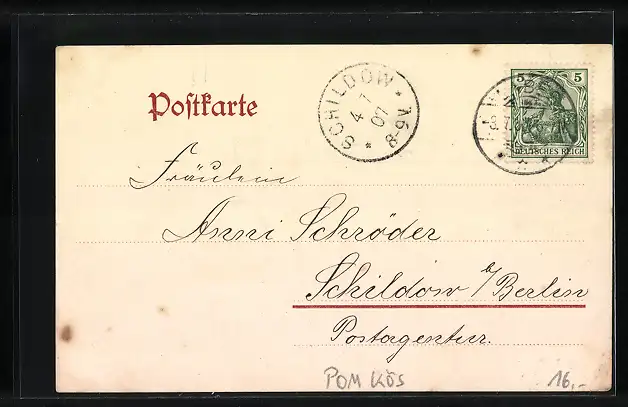 Postkarte
SCHILDOW
4 7
07
8-9V.
5
DEUTSCHES REICH
Fräulein
Anni Schröder
Schildow b/Berlin
Postagentur.
POM KÖS
16,-